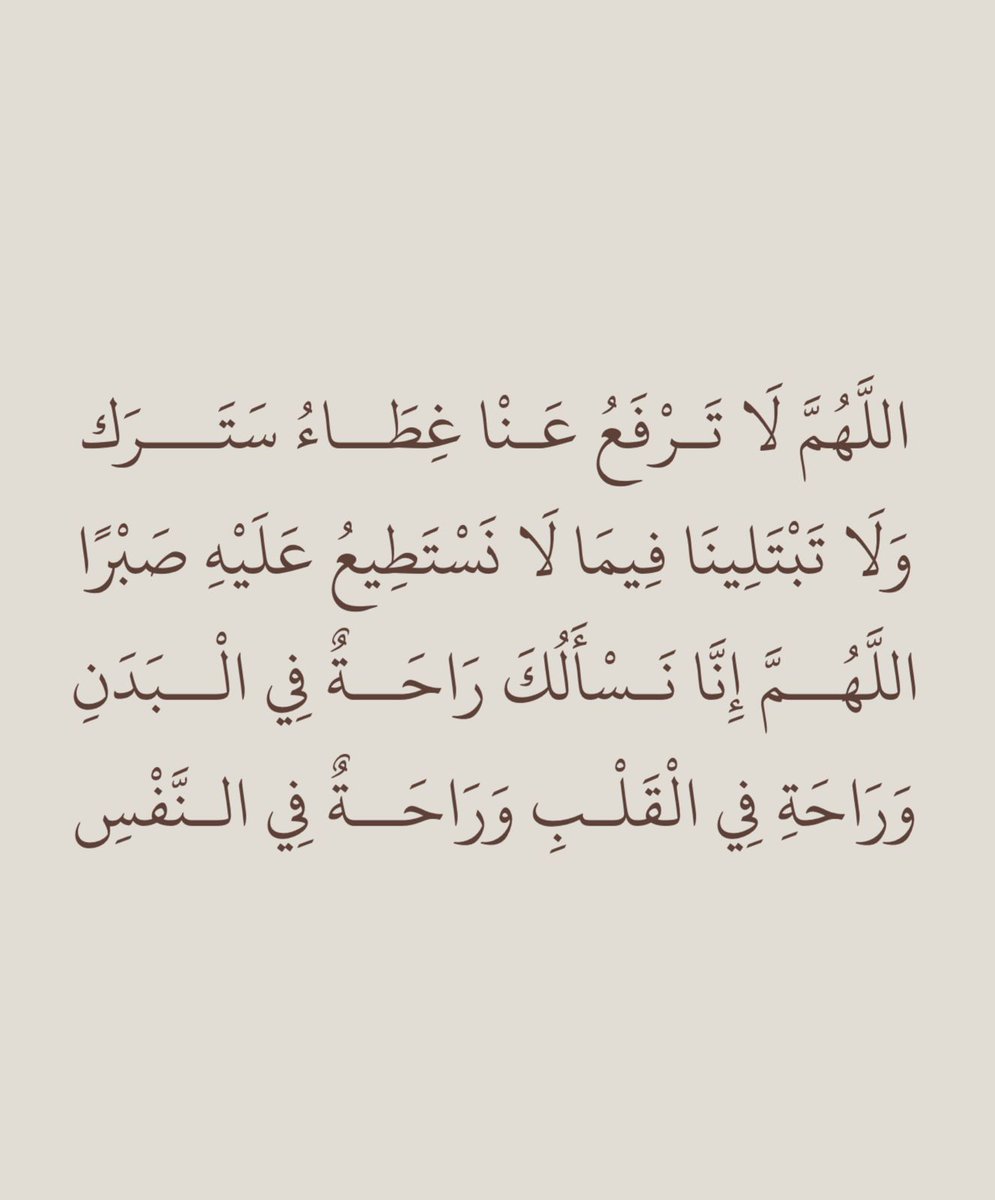 اللَّهُمَّ لَا تَرْفَعُ عَنْا غِطَاءُ سَتَرَك
وَلَا تَبْتَلِينَا فِيمَا لَا نَسْتَطِيعُ عَلَيْهِ صَبْرًا
اللَّهُمَّ إِنَّا نَسْأَلُكَ رَاحَةٌ فِي الْبَدَنِ
وَرَاحَةِ فِي الْقَلْبِ وَرَاحَةٌ فِي النَّفْسِ